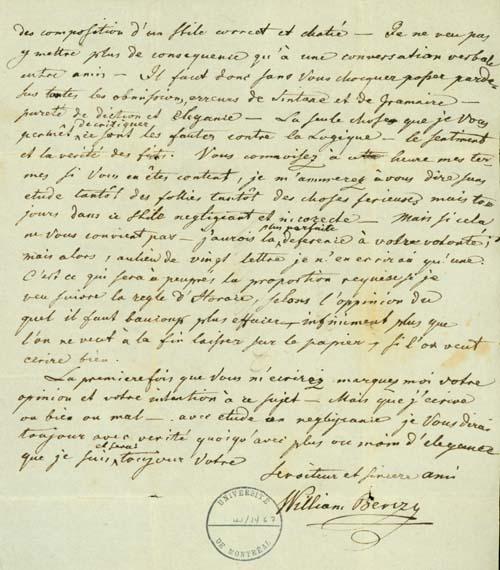 des composition d'un stile correct et chatié — Je ne veu pas
y mettre plus de consequence qu'à une conversation verbale
entre amis — Il faut donc sans Vous choquer passer parde-
sus toutes les obmissions, erreurs de Sintaxe et de Gramaire —
pureté de diction et Elegance — La seule chose que je Vous
de critiquer
ce sont les fautes contre la Logique — le sentiment
et la verité des fits. Vous connaisez à cette heure mes ter-
mes si Vous en êtes content, je m'ammuserez à vous dire sans
etude tantôt des follies tantôt des choses serieuses mais tou-
jours dans ce Stile negligeant et — Mais si cela
plus parfaite
ne vous convient pas — j'aurois la deference à votre volonté;
mais alors, aulieu de vingt lettre je n'en ecrirai qu'une.
C'est ce qui sera à peuprés la proportion requise si je
veu suivre la regle d'Horace, selons l'oppinion du
quel il faut baucoup plus effacer, infiniment plus que
l'on ne veut à la fin laisser sur le papier, si l'on veut
ecrire bien.
La premiere fois que Vous m'ecrirez marquez moi votre
opinion et votre intention à ce sujet — Mais que j'ecrive
ou bien ou mal — avec etude ou negligeance je Vous dirai
toujour avec verité quoiqu'avec plus ou moin d'elegance
et serai
que je suis toujour Votre
Serviteur et sincere ami
William Berczy
UNIVERSITÉ
DE MONTRÉAL